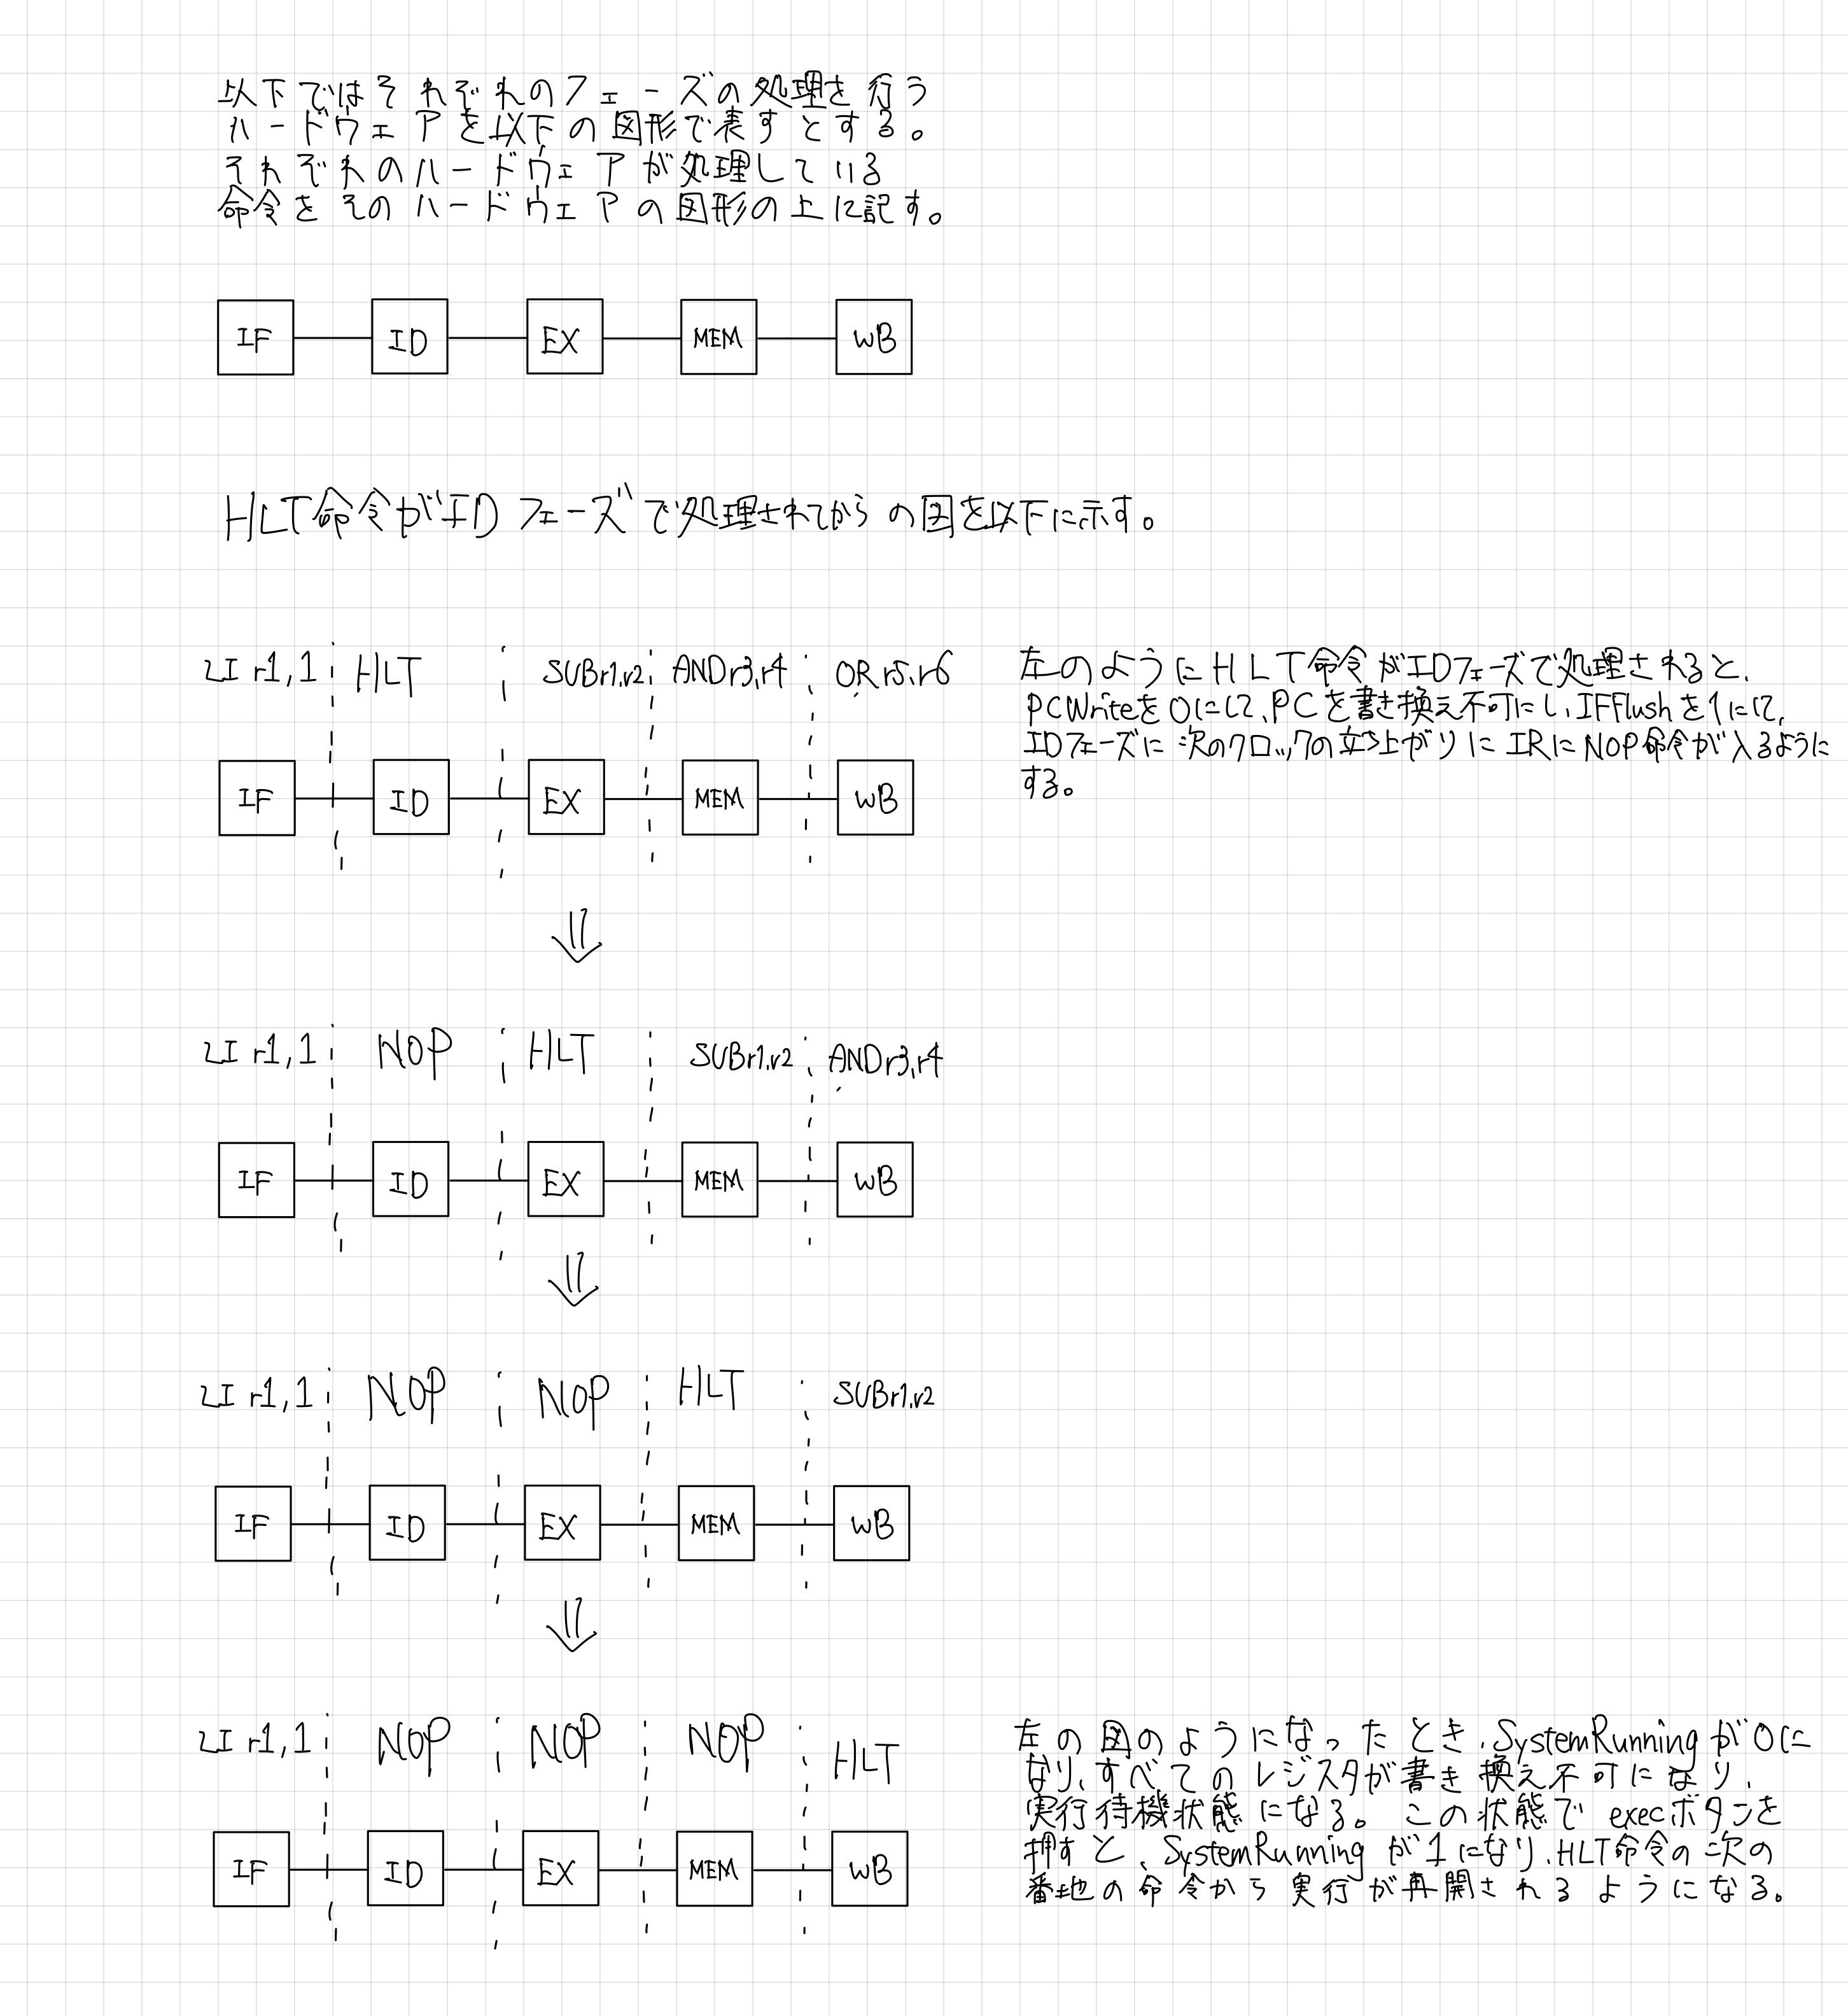 以下ではそれぞれのフェーズの処理を行う
ハードウェアを以下の図形で表すとする。
それぞれのハードウェアが処理している
命令をそのハードウェアの図形の上に記す。
IF ID EX MEM WB
HLT命令がIDフェーズで処理されてからの図を以下に示す。
LI r1,1 HLT SUBr1,r2 ANDr3,r4 OR r5,r6
左のようにHLT命令がIDフェーズで処理されると、
PCWriteを0にして、PCを書き換え不可にし、IFFlushを1にして、
IDフェーズに次のクロックの立ち上がりにIRにNOP命令が入るように
する。
IF ID EX MEM WB
LI r1,1 NOP HLT SUBr1,r2 ANDr3,r4
IF ID EX MEM WB
LI r1,1 NOP NOP HLT SUBr1,r2
IF ID EX MEM WB
LI r1,1 NOP NOP NOP HLT
左の図のようになったとき、SystemRunningが0に
なり、すべてのレジスタが書き換え不可になり、
実行待機状態になる。この状態でexecボタンを
押すと、SystemRunningが1になり、HLT命令の次の
番地の命令から実行が再開されるようになる。
IF ID EX MEM WB